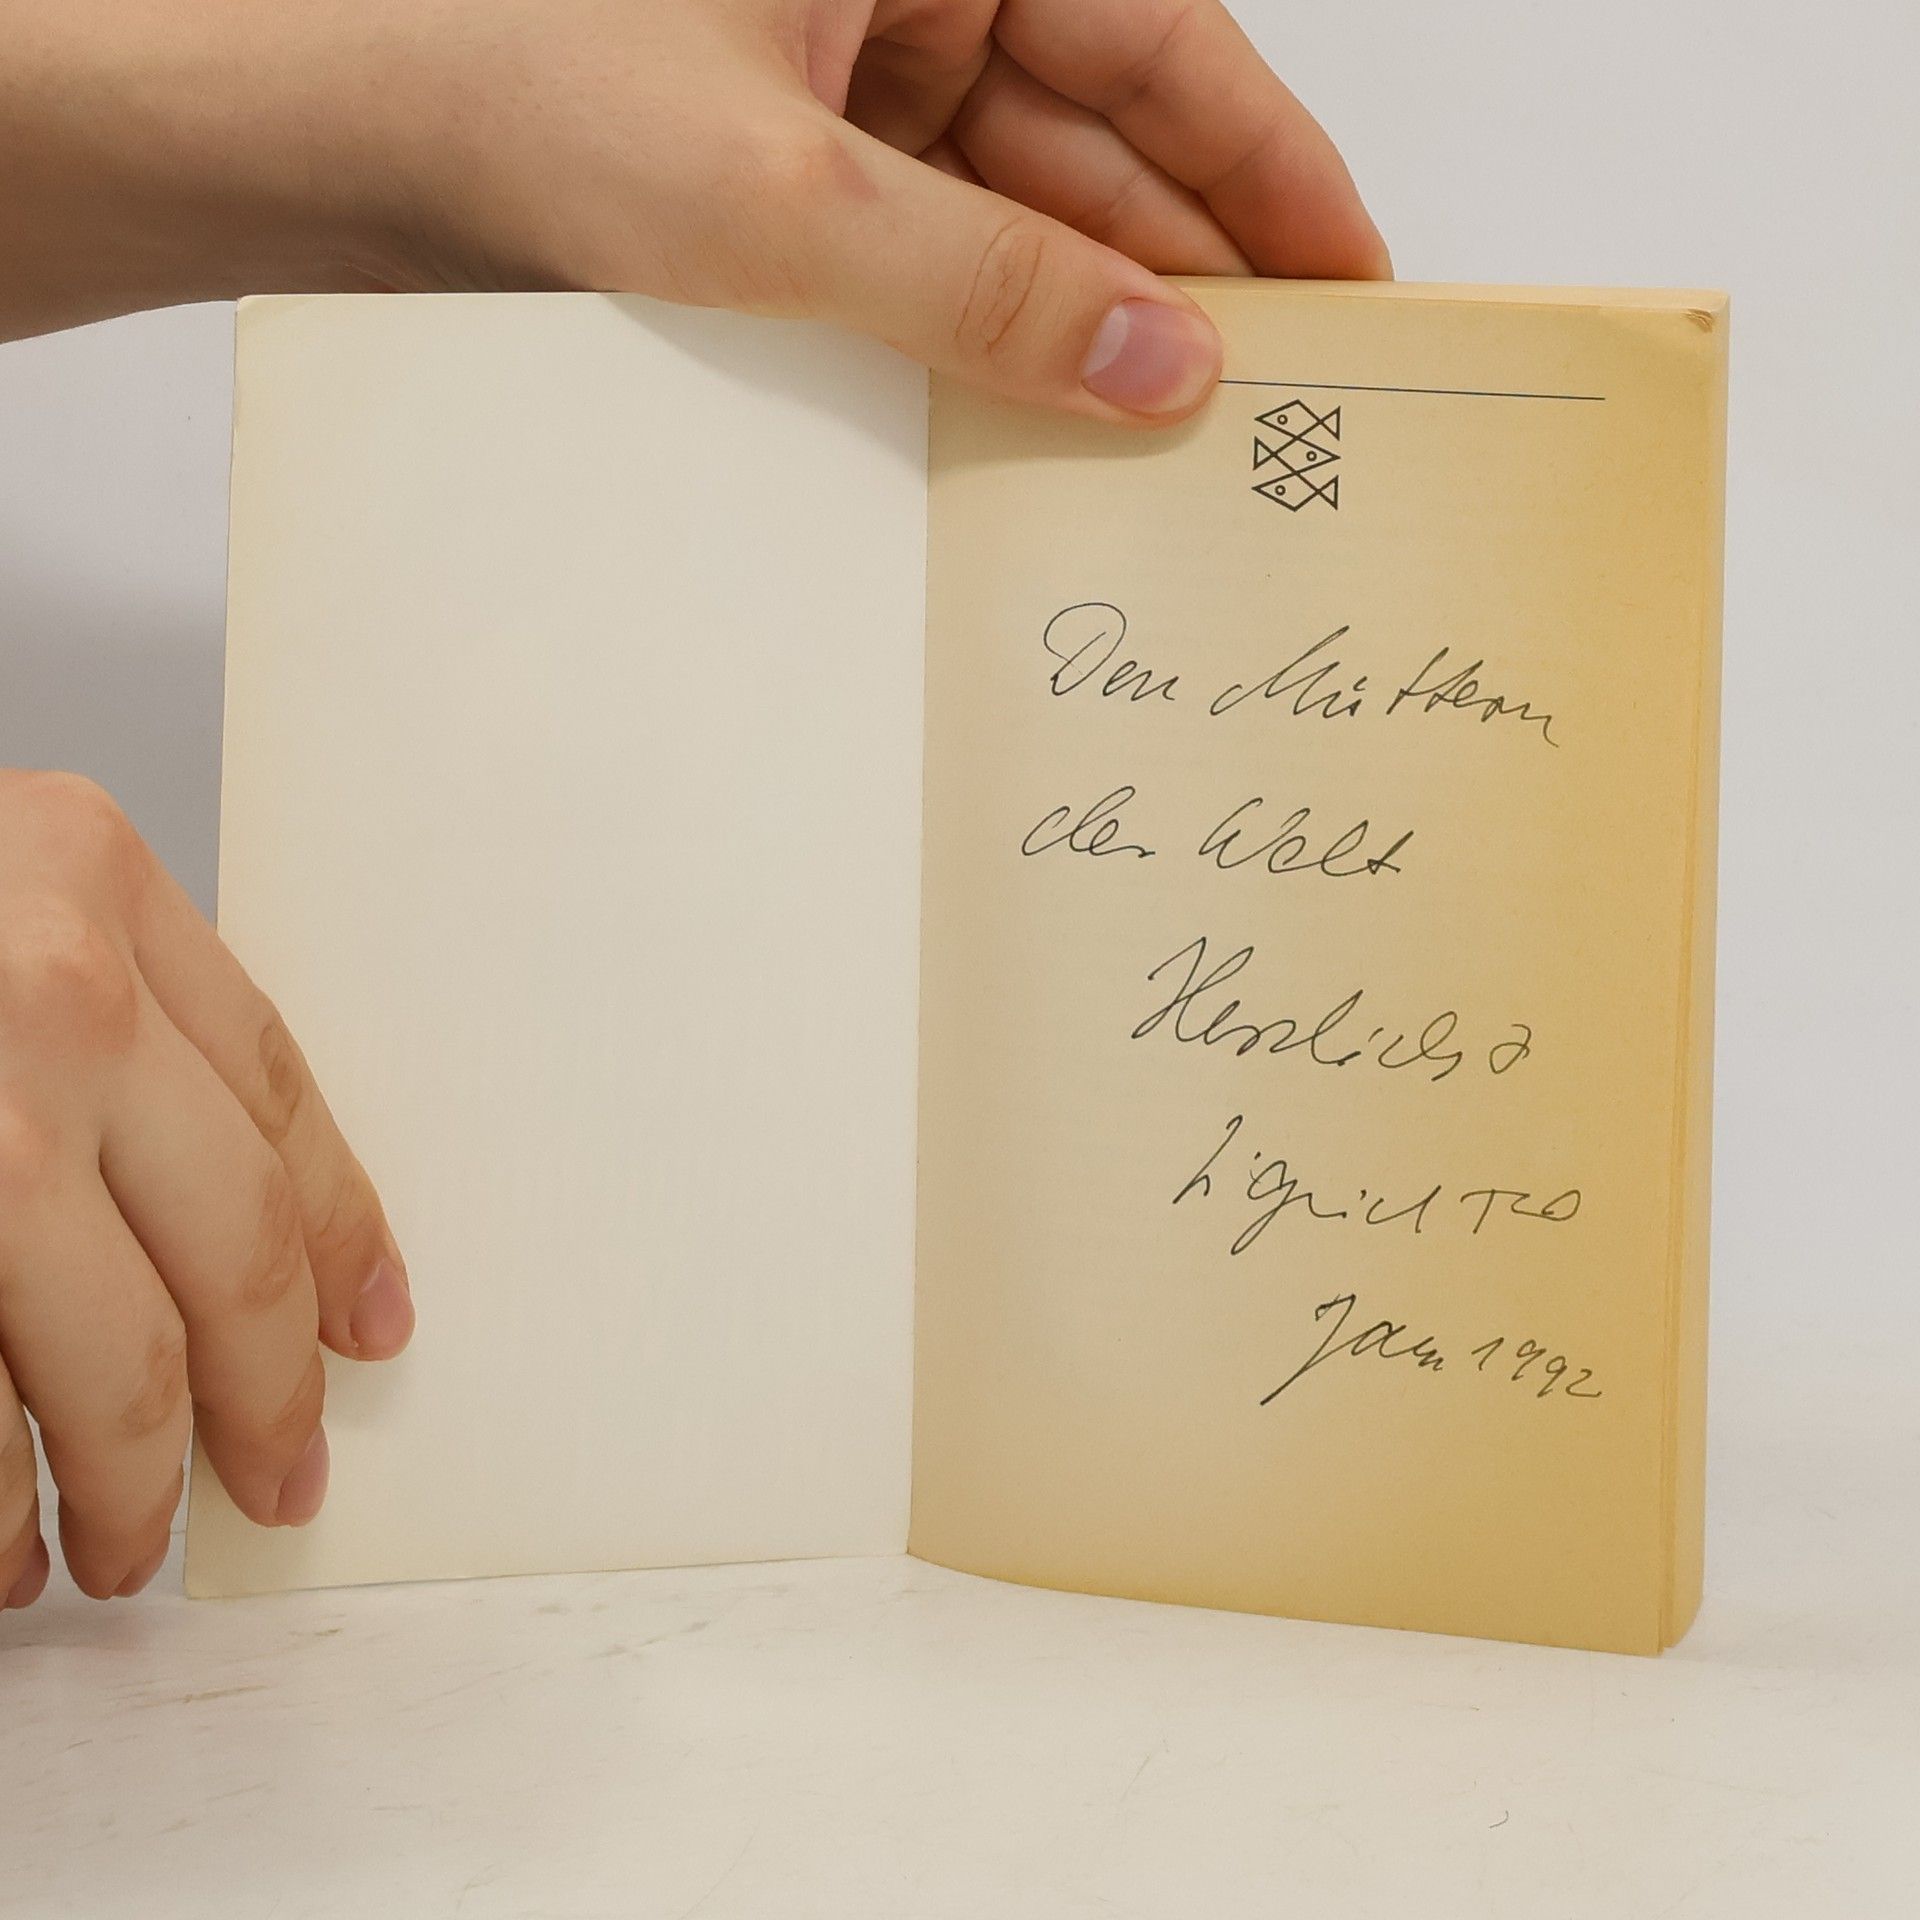 Den Müttern
der Welt
Herzlichst
Jan 1992